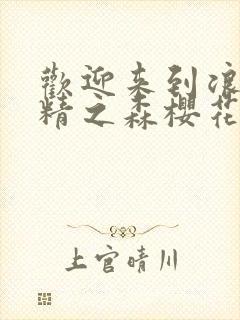 歡迎来到浪
精之森櫻花
上官晴川